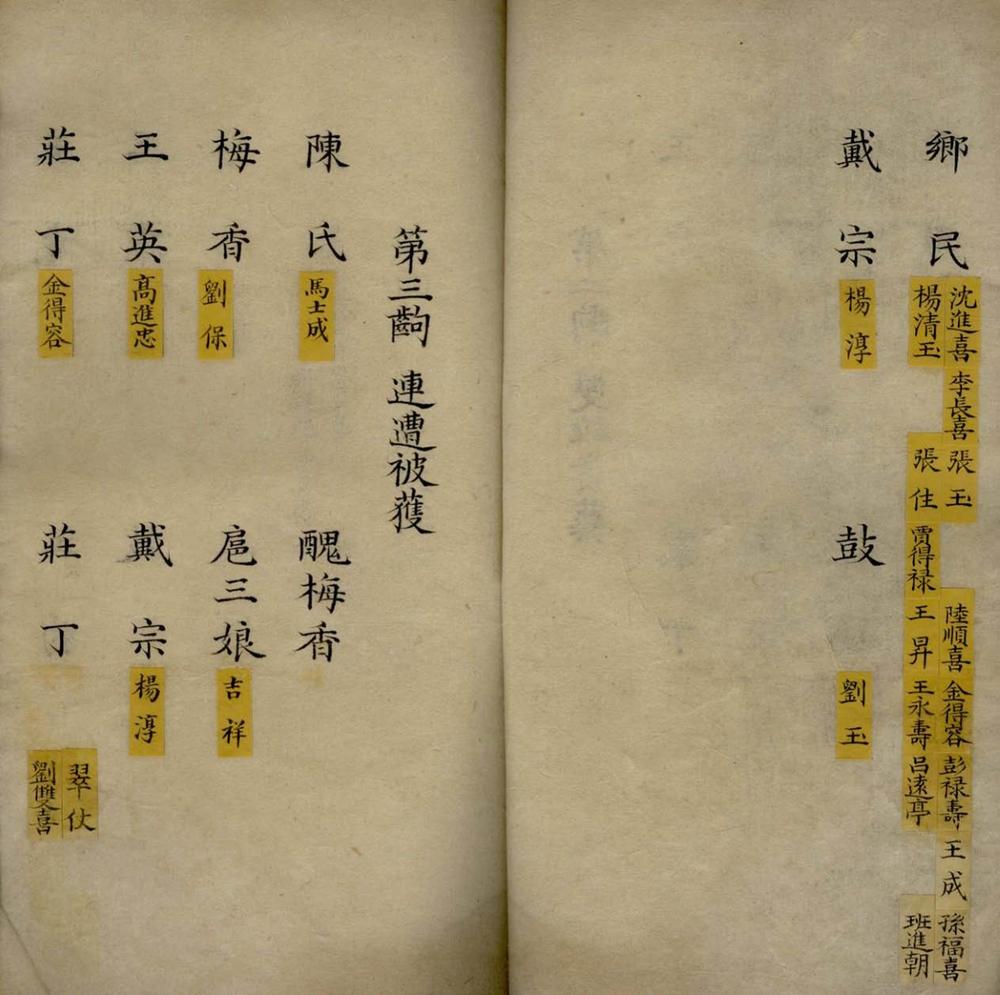 鄉民
沈進喜 李長喜 張玉 陸順喜 金得容 彭禄壽 王成 孫福喜
楊清玉 張住 賈得禄 王昇 王永壽 呂遠亭 班進朝
戴宗 楊淳 鼓 劉玉
第三齣 連遭被獲
陳氏 馬士成 醜梅香
梅香 劉保 扈三娘 吉祥
王英 高進忠 戴宗 楊淳
莊丁 金得容 莊丁 翠仗
劉雙喜